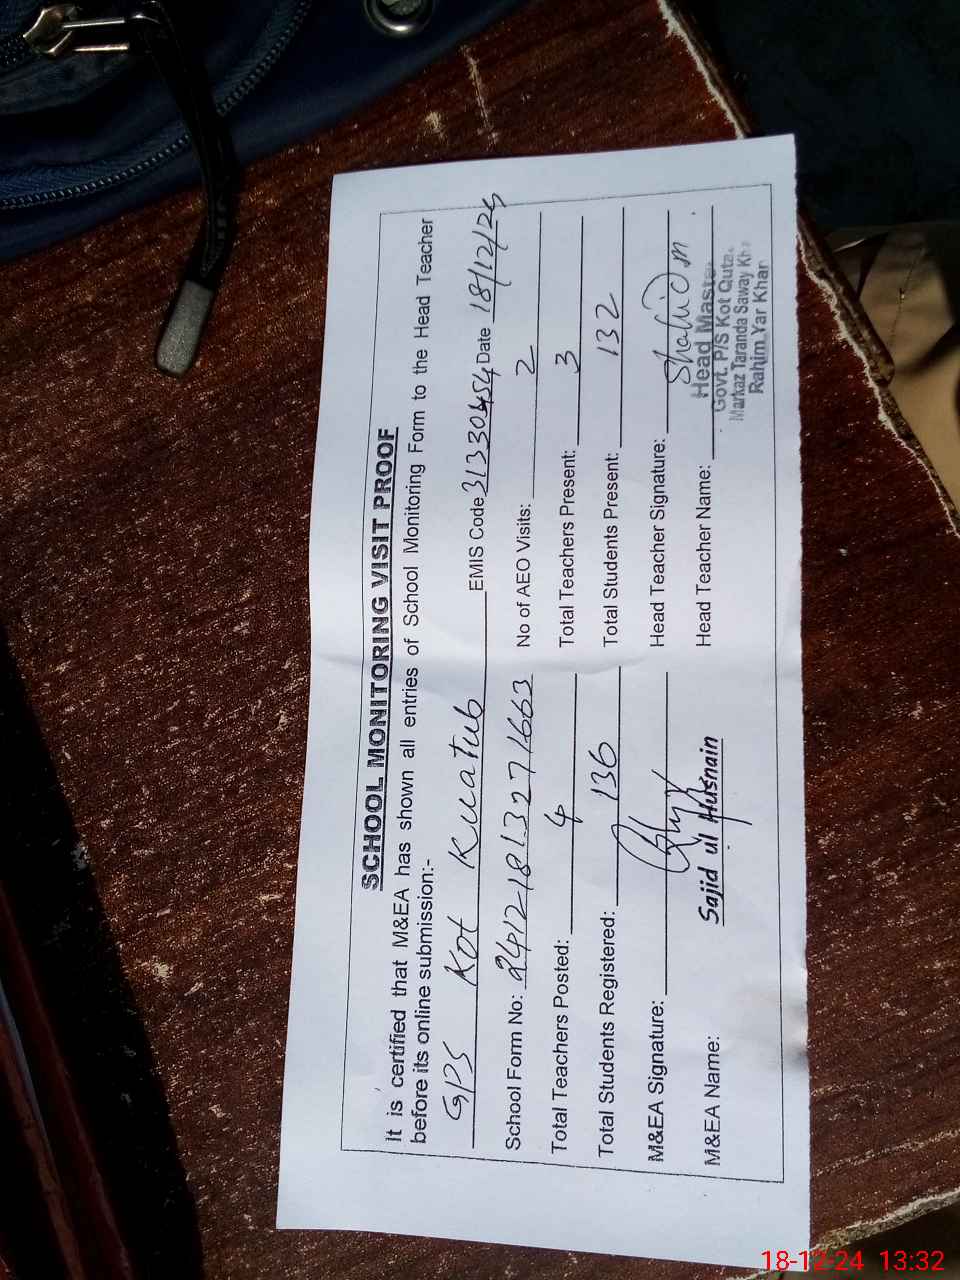 SCHOOL MONITORING VISIT PROOF
It is certified that M&EA has shown all entries of School Monitoring Form to the Head Teacher
before its online submission:-
GPS Kot Kuatub EMIS Code 31330454 Date 18/12/24
School Form No: 2412-181327 1663 No of AEO Visits: 2
Total Teachers Posted: 4 Total Teachers Present: 3
Total Students Registered: 136 Total Students Present: 132
M&EA Signature: Head Teacher Signature: Shahid m
M&EA Name: Sajid ul Husnain Head Teacher Name:
Head Master
Govt. P/S Kot Qutab
Markaz Taranda Saway Kha
Rahim Yar Khan
18-12-24 13:32